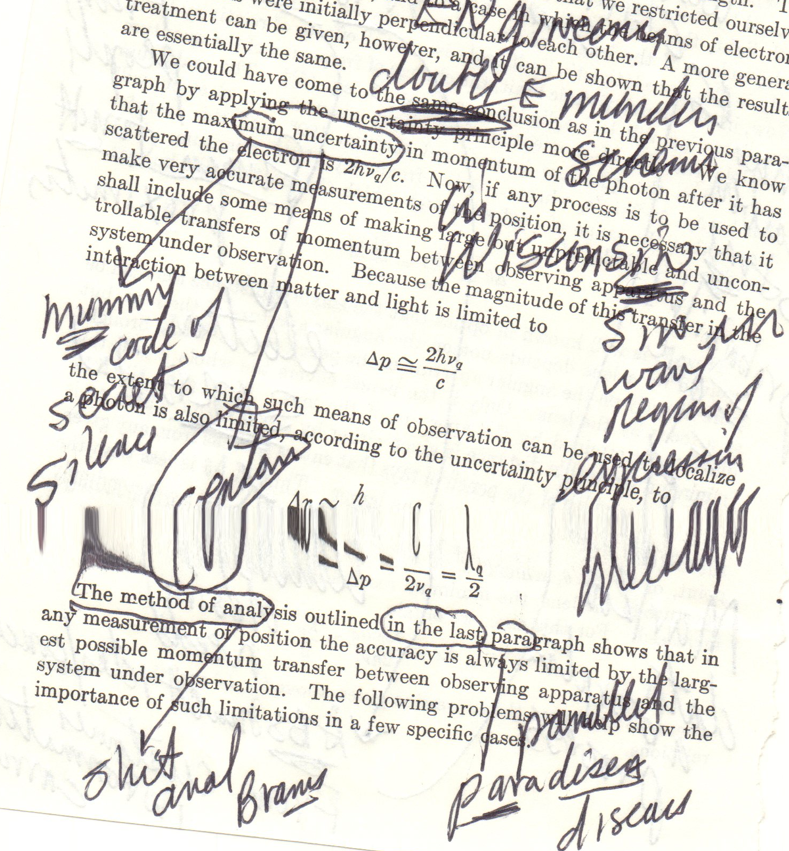 that we restricted ourselv
were initially perpendicular to each other. A more genera
treatment can be given, however, and it can be shown that the result
are essentially the same.
We could have come to the same conclusion as in the previous para-
graph by applying the uncertainty principle more We know
that the maximum uncertainty in momentum of the photon after it has
scattered the electron is 2hνq/c. Now, if any process is to be used to
make very accurate measurements of the position, it is necessary that it
shall include some means of making large but unpredictable and uncon-
trollable transfers of momentum between observing apparatus and the
system under observation. Because the magnitude of this transfer in the
interaction between matter and light is limited to
Δp ≅ 2hνq/c
the extent to which such means of observation can be used to localize
a photon is also limited, according to the uncertainty principle, to
h
Δp = 2νq = λq/2
The method of analysis outlined in the last paragraph shows that in
any measurement of position the accuracy is always limited by the larg-
est possible momentum transfer between observing apparatus and the
system under observation. The following problems will help show the
importance of such limitations in a few specific cases.
Engineering
double E
in
Wisconsin
wave
mummy
code of
secret
silence
shit
anal
Brams
parallel
paradises